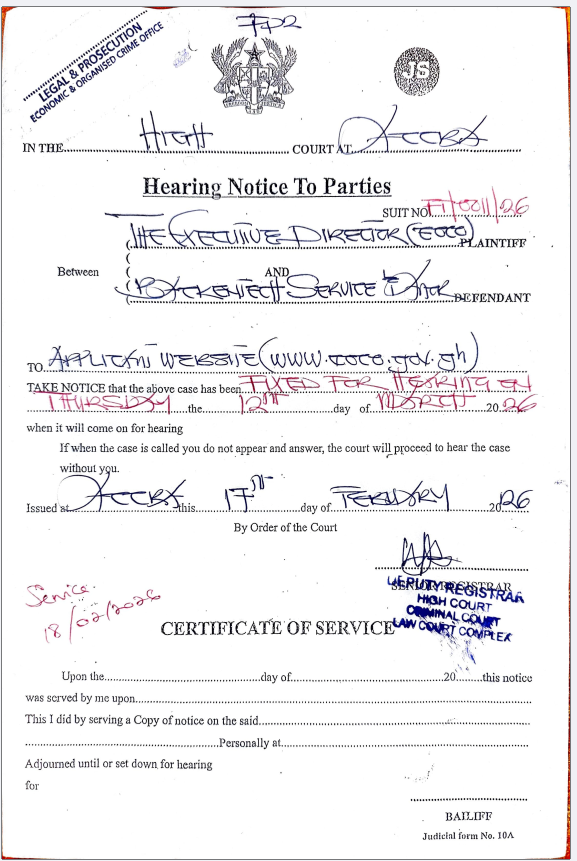 LEGAL & PROSECUTION
ECONOMIC & ORGANISED CRIME OFFICE
JS
IN THE HIGH COURT AT ACCRA
Hearing Notice To Parties
SUIT NO. FT/0011/26
THE EXECUTIVE DIRECTOR (EOCO) PLAINTIFF
Between AND
SERVICE DEFENDANT
TO APPLICANT WEBSITE (www.eoco.gov.gh)
TAKE NOTICE that the above case has been FIXED FOR HEARING ON
THURSDAY the 12TH day of MARCH 2026
when it will come on for hearing
If when the case is called you do not appear and answer, the court will proceed to hear the case
without you.
Issued at ACCRA this 17TH day of FEBRUARY 2026
By Order of the Court
SENIOR REGISTRAR
DEPUTY REGISTRAR
HIGH COURT
CRIMINAL COURT
LAW COURT COMPLEX
Service
18/02/2026
CERTIFICATE OF SERVICE
Upon the day of 20 this notice
was served by me upon
This I did by serving a Copy of notice on the said
Personally at
Adjourned until or set down for hearing
for
BAILIFF
Judicial form No. 10A